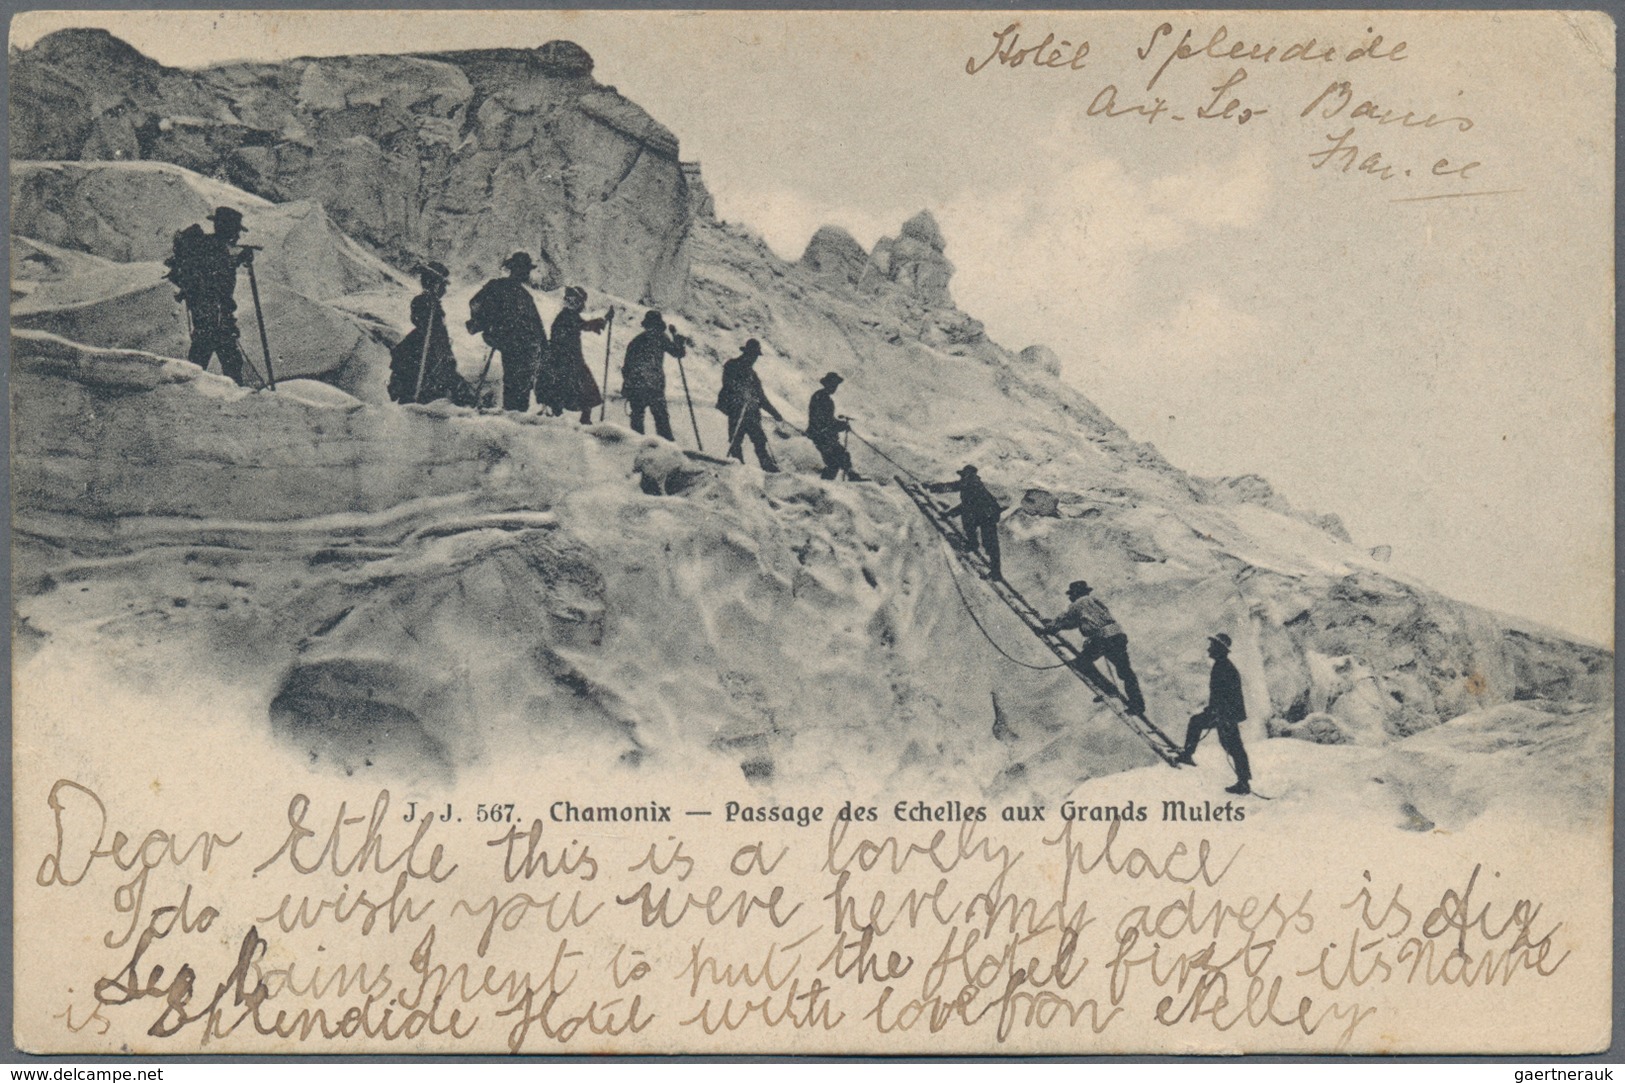 Hotêl Splendide
Aix-Les Bains
France
J. J. 567. Chamonix — Passage des Echelles aux Grands Mulets
Dear Ethle this is a lovely place
I do wish you were here my adress is Aix
Les Bains I ment to put the Hotel first its name
is Splendide Hotel with love from Nelley
www.delcampe.net
gaertnerauk